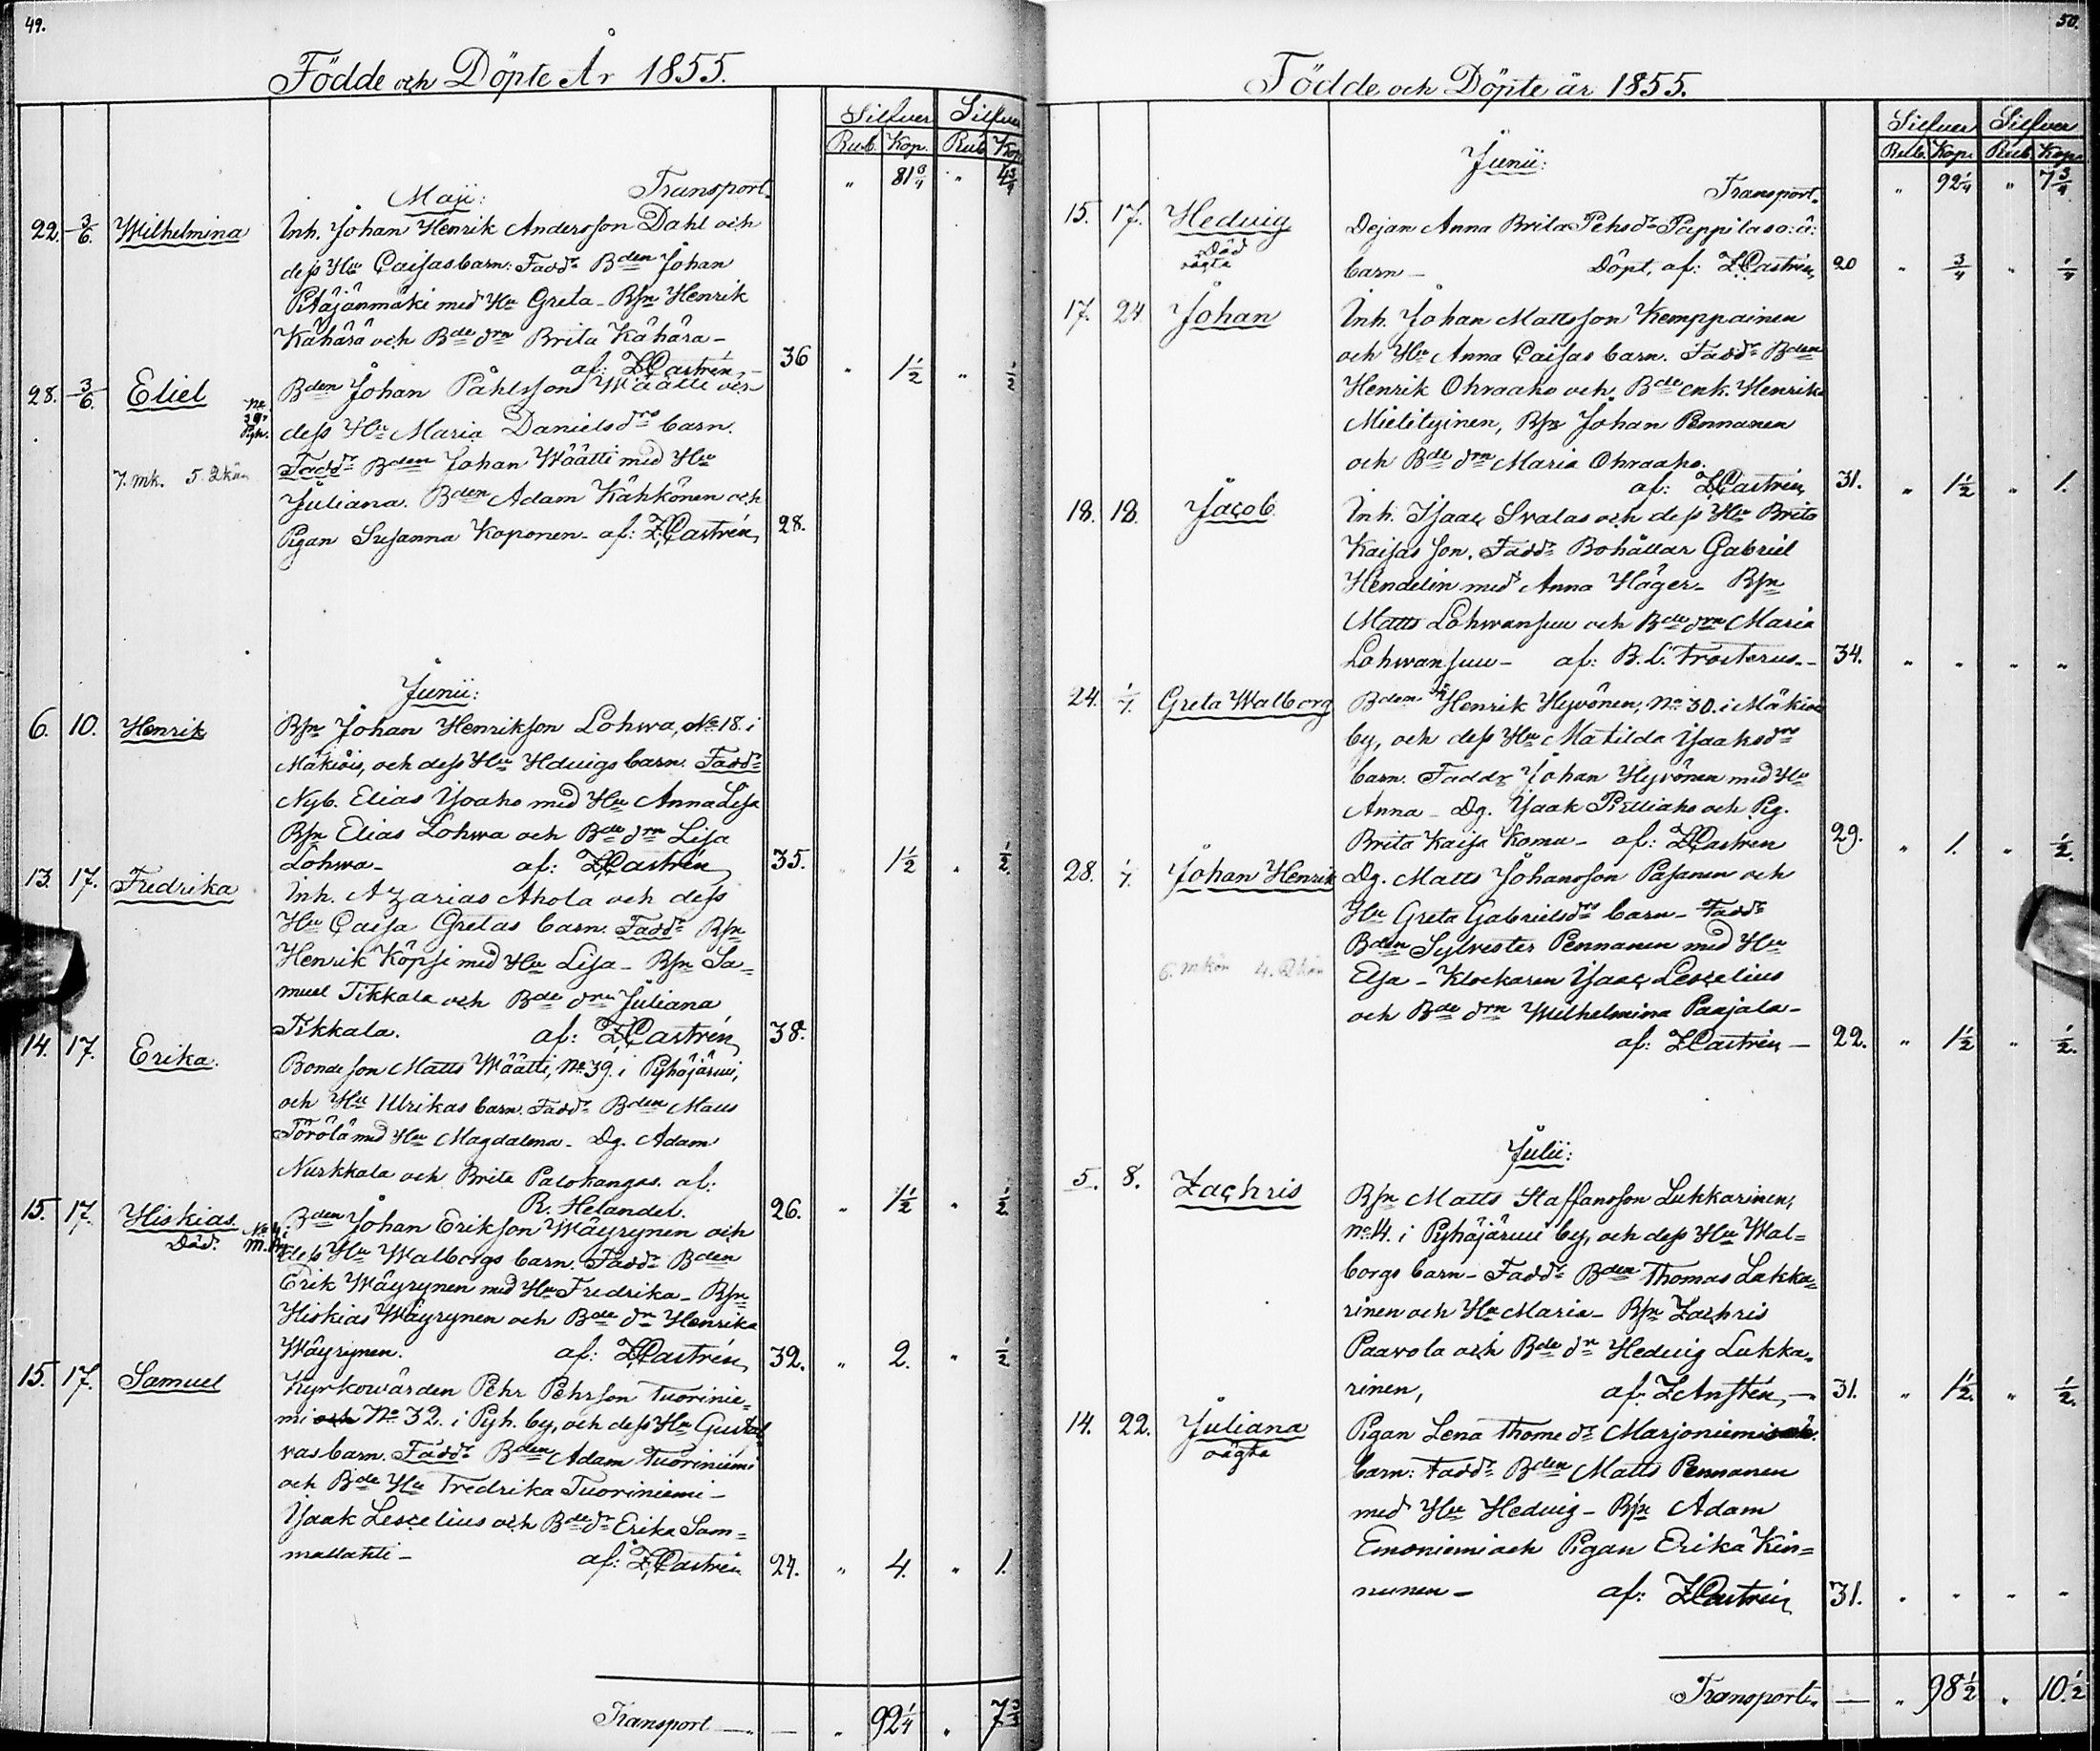 49.
Födde och Döpte År 1855.
Silfver Silfver
Rub. Kop. Rub Kop
Maji: Transport. " 81 3/4 " 4 3/4
22. 3/6. Wilhelmina Inh. Johan Henrik Andersson Dahl och
dess Hu Caisas barn: Fadd: Bden Johan
Pitäjänmäki med Hu Greta - Bsn Henrik
Kähärä och Bde drn Brita Kähära -
af: Z. Castrén, - 36 " 1 1/2 " 1/2
28. 3/6. Eliel Bden Johan Påhlsson Wäätti och
dess Hu Maria Danielsdrs barn.
Fadd: Bden Johan Wäätti med Hu
7. mk. 5. Qkön
Juliana. Bden Adam Kähkönen och
Pigan Susanna Koponen - af: Z. Castrén, 28.
Junii:
6. 10. Henrik Bsn Johan Henrikson Lohwa, No 18. i
Mäkiöis, och dess Hu Hdvigs barn. Fadd:
Nyb. Elias Ysoaho med Hu Anna Lisa
Bsn Elias Lohwa och Bde drn Lisa
Lohwa - af: Z. Castrén 35. " 1 1/2 " 1/2.
13. 17. Fredrika Inh. Azarias Ahola och dess
Hu Caisa Gretas barn. Fadd: Bsn
Henrik Köpsi med Hu Lisa - Bsn Sa=
muel Tikkala och Bde drn Juliana
Tikkala. af: Z. Castrén, 38.
14. 17. Erika. Bondeson Matts Wäätti, No 39. i Pyhäjärwi,
och Hu Ulrikas barn. Fadd: Bden Matts
Törölä med Hu Magdalena - Dg. Adam
Nurkkala och Brita Palokangas. af:
R. Helander. 26. " 1 1/2 " 1/2.
15. 17. Hiskias. Bden Johan Erikson Wäyrynen och
Död. dess Hu Walborgs barn. Fadd: Bden
Erik Wäyrynen med Hu Fredrika - Bsn
Hiskias Wäyrynen och Bde dr Henrika
Wäyrynen. af: Z. Castrén, 32. " 2. " 1/2
15. 17. Samuel Kyrkowärden Pehr Pehrson Tuorinie=
mi och No 32. i Pyh. by, och dess Hu Gusta
vas barn. Fadd: Bden Adam Tuoriniemi
och Bde Hu Fredrika Tuoriniemi -
Ysaak Lescelius och Bde dr Erika Sam=
mallahti - af: Z. Castrén 24. " 4. " 1.
Transport - - " 92 1/4 " 7 3/4
50.
Födde och Döpte år 1855.
Silfver Silfver
Rub. Kop. Rub. Kop.
Junii:
Transport. " 92 1/4 " 7 3/4
15. 17. Hedvig Dejan Anna Brita Pehrsdr Pappilas o: ä:
Död
oägta barn - Döpt, af: Z. Castrén, 20 " 3/4 " 1/4
17. 24. Johan Inh. Johan Mattsson Kemppainen
och Hu Anna Caisas barn. Fadd: Bden
Henrik Ohraaho och Bde enk. Henrika
Mielityinen, Bsn Johan Pennanen
och Bde drn Maria Ohraaho.
af: Z. Castrén, 31. " 1 1/2 " 1.
18. 18. Jacob Inh. Isaac Svalas och dess Hu Brita
Kaisas son. Fadd: Bohållar Gabriel
Hendelin med Anna Häger - Bsn
Matts Lohwansuu och Bde drn Maria
Lohwansuu - af: B. L. Frosterus. - 34. " " " "
24. 1/7. Greta Walborg Bden Henrik Hyvönen, No 30. i Mäkiöis
by, och dess Hu Matilda Ysaksdrs
barn. Faddr Johan Hyvönen med Hu
Anna - Dg. Ysaak Pielliaho och Pig.
Brita Kaisa Komu - af: Z. Castren 29. " 1. " 1/2.
28. 1/7. Johan Henrik Dg. Matts Johansson Pasanen och
Hu Greta Gabrielsdrs barn - Fadd:
Bden Sylvester Pennanen med Hu
6. mkön 4. Qkön Elsa - Klockaren Ysaac Lescelius
och Bde drn Wilhelmina Paajala -
af: Z. Castrén - 22. " 1 1/2 " 1/2.
Julii:
5. 8. Zachris Bsn Matts Staffansson Lukkarinen,
No 4. i Pyhäjärwi by, och dess Hu Wal=
borgs barn - Fadd: Bden Thomas Lukka=
rinen och Hu Maria - Bsn Zachris
Paavola och Bde dr Hedvig Lukka=
rinen, af: Z. 31. " 1 1/2. " 1/2.
14. 22. Juliana Pigan Lena Thome dr Marjoniemis
oägta barn: Fadd: Bden Matts Pennanen
med Hu Hedvig - Bsn Adam
Emoniemi och Pigan Erika Kin=
nunen - af: Z. Castrén 31. " " " "
Transport. - " 98 1/2 " 10 1/2